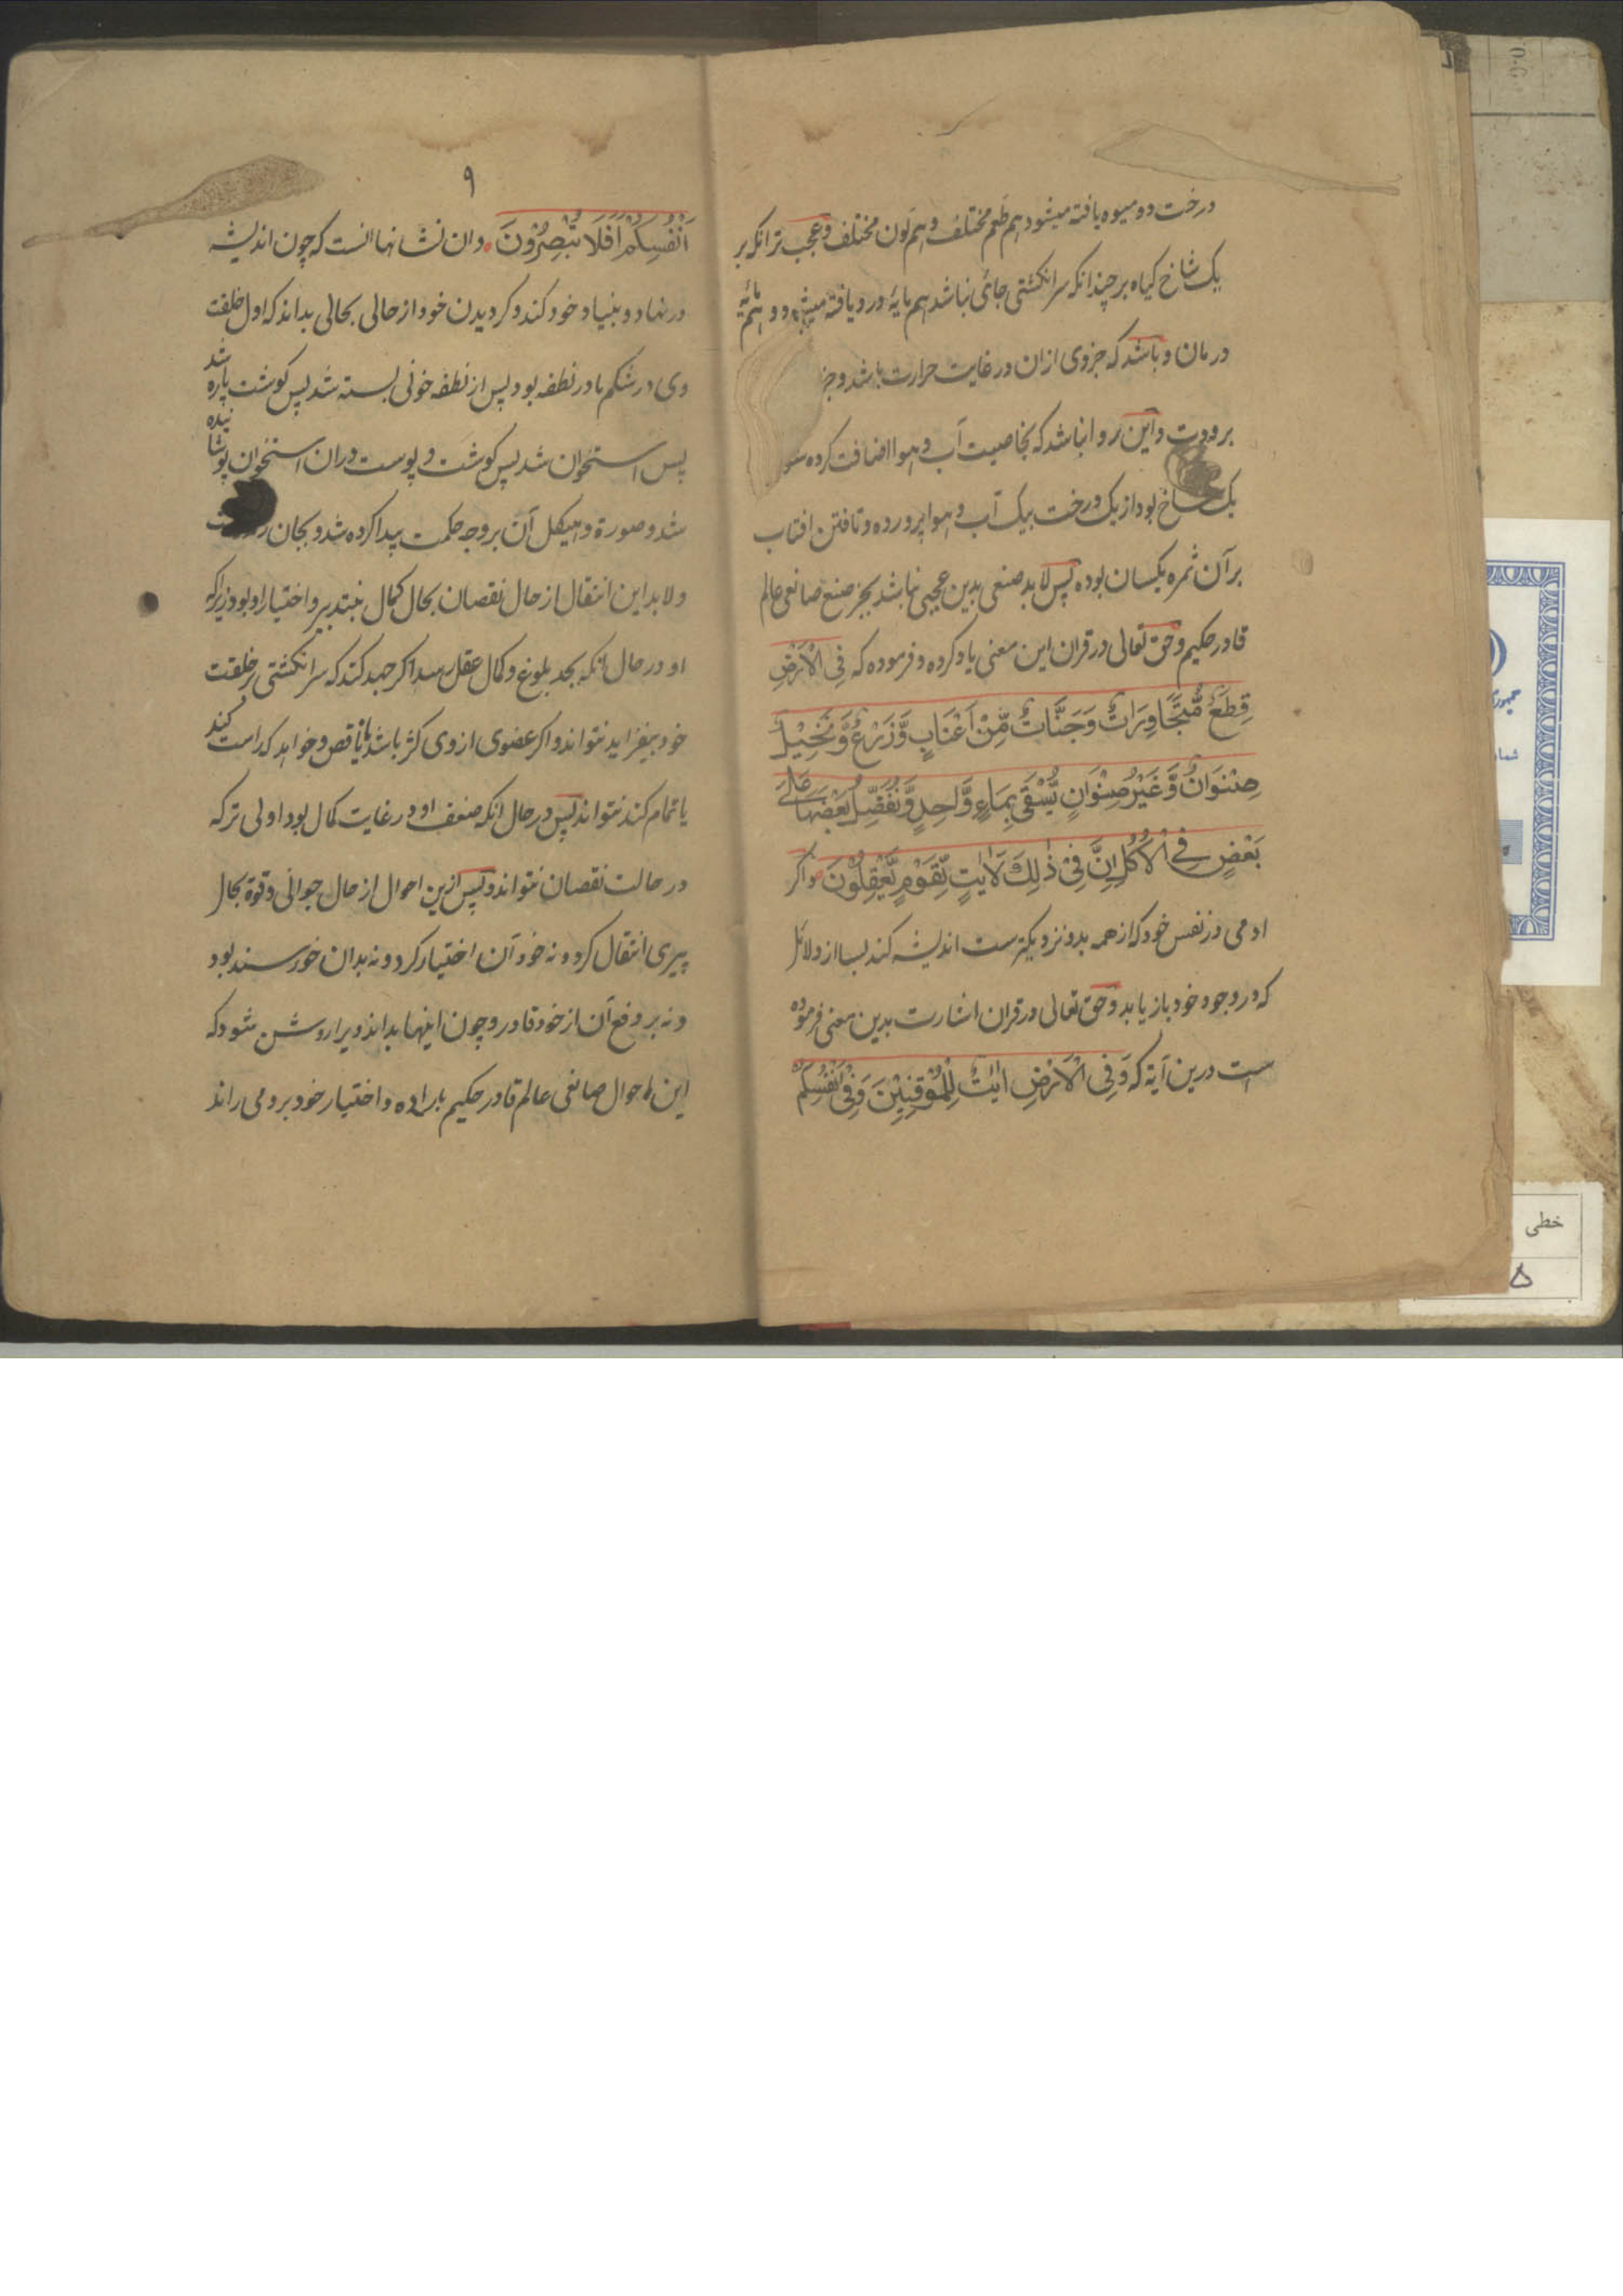 درخت دو میوه یافته میشود هم طعم مختلف و هم لون مختلف و عجب تر انکه بر
یک شاخ کیاه بر چندانکه سر انکشتی جائی نباشد هم مایۀ درد یافته میشود و هم مایۀ
درمان و باشد که جزوی ازان در غایت حرارت باشد و
برودت و این روا نباشد که بخاصیت آب و هوا اضافت کرده
یک شاخ بود از یک درخت بیک آب و هوا پرورده و تافتن افتاب
بر آن ثمره یکسان بوده پس لابد صنعی بدین عجیبی نباشد بجز صنع صانعی عالم
قادر حکیم و حق تعالی در قران این معنی یاد کرده و فرموده که فِی الْاَرْضِ
قِطَعٌ مُّتَجَاوِرَاتٌ وَجَنَّاتٌ مِّنْ اَعْنَابٍ وَّزَرْعٌ وَّنَخِیْلٌ
صِنْوَانٌ وَّغَیْرُ صِنْوَانٍ یُّسْقٰی بِمَاءٍ وَّاحِدٍ وَّنُفَضِّلُ بَعْضَهَا عَلٰی
بَعْضٍ فِی الْاُکُلِ اِنَّ فِیْ ذٰلِکَ لَاٰیٰتٍ لِّقَوْمٍ یَّعْقِلُوْنَ و اکر
ادمی در نفس خود که از همه بدو نزدیکترست اندیشه کند بسا از دلائل
که در وجود خود باز یابد و حق تعالی در قران اشارت بدین معنی فرموده
است درین آیة که وَفِی الْاَرْضِ اٰیٰتٌ لِّلْمُوْقِنِیْنَ وَفِیْ اَنْفُسِکُمْ
۹
اَنْفُسِکُمْ اَفَلَا تُبْصِرُوْنَ و ان نشانها انست که چون اندیشه
در نهاد و بنیاد خود کند و کردیدن خود از حالی بحالی بداند که اول خلقت
وی در شکم مادر نطفه بود پس از نطفه خونی بسته شد پس کوشت پاره شد
پس استخوان شد پس کوشت و پوست دران استخوان پوشانیده
شد و صورة و هیکل آن بر وجه حکمت پیدا کرده شد و بجان
و لابد این انتقال از حال نقصان بحال کمال نبتدبیر و اختیار او بود زیراکه
او در حال انکه بحد بلوغ و کمال عقل رسد اکر جهد کند که سر انکشتی در خلقت
خود بیفزاید نتواند و اکر عضوی از وی کژ باشد یا ناقص و خواهد که راست کند
یا تمام کند نتواند پس در حال انکه ضعف او در غایت کمال بود اولی تر که
در حالت نقصان نتواند و پس ازین احوال از حال جوانی و قوة بحال
پیری انتقال کرد و نه خود آن اختیار کرد و نه بدان خورسند بود
و نه بر دفع آن از خود قادر و چون اینها بداند ویرا روشن شود که
این احوال صانعی عالم قادر حکیم باراده و اختیار خود برو می راند
خطی
۵